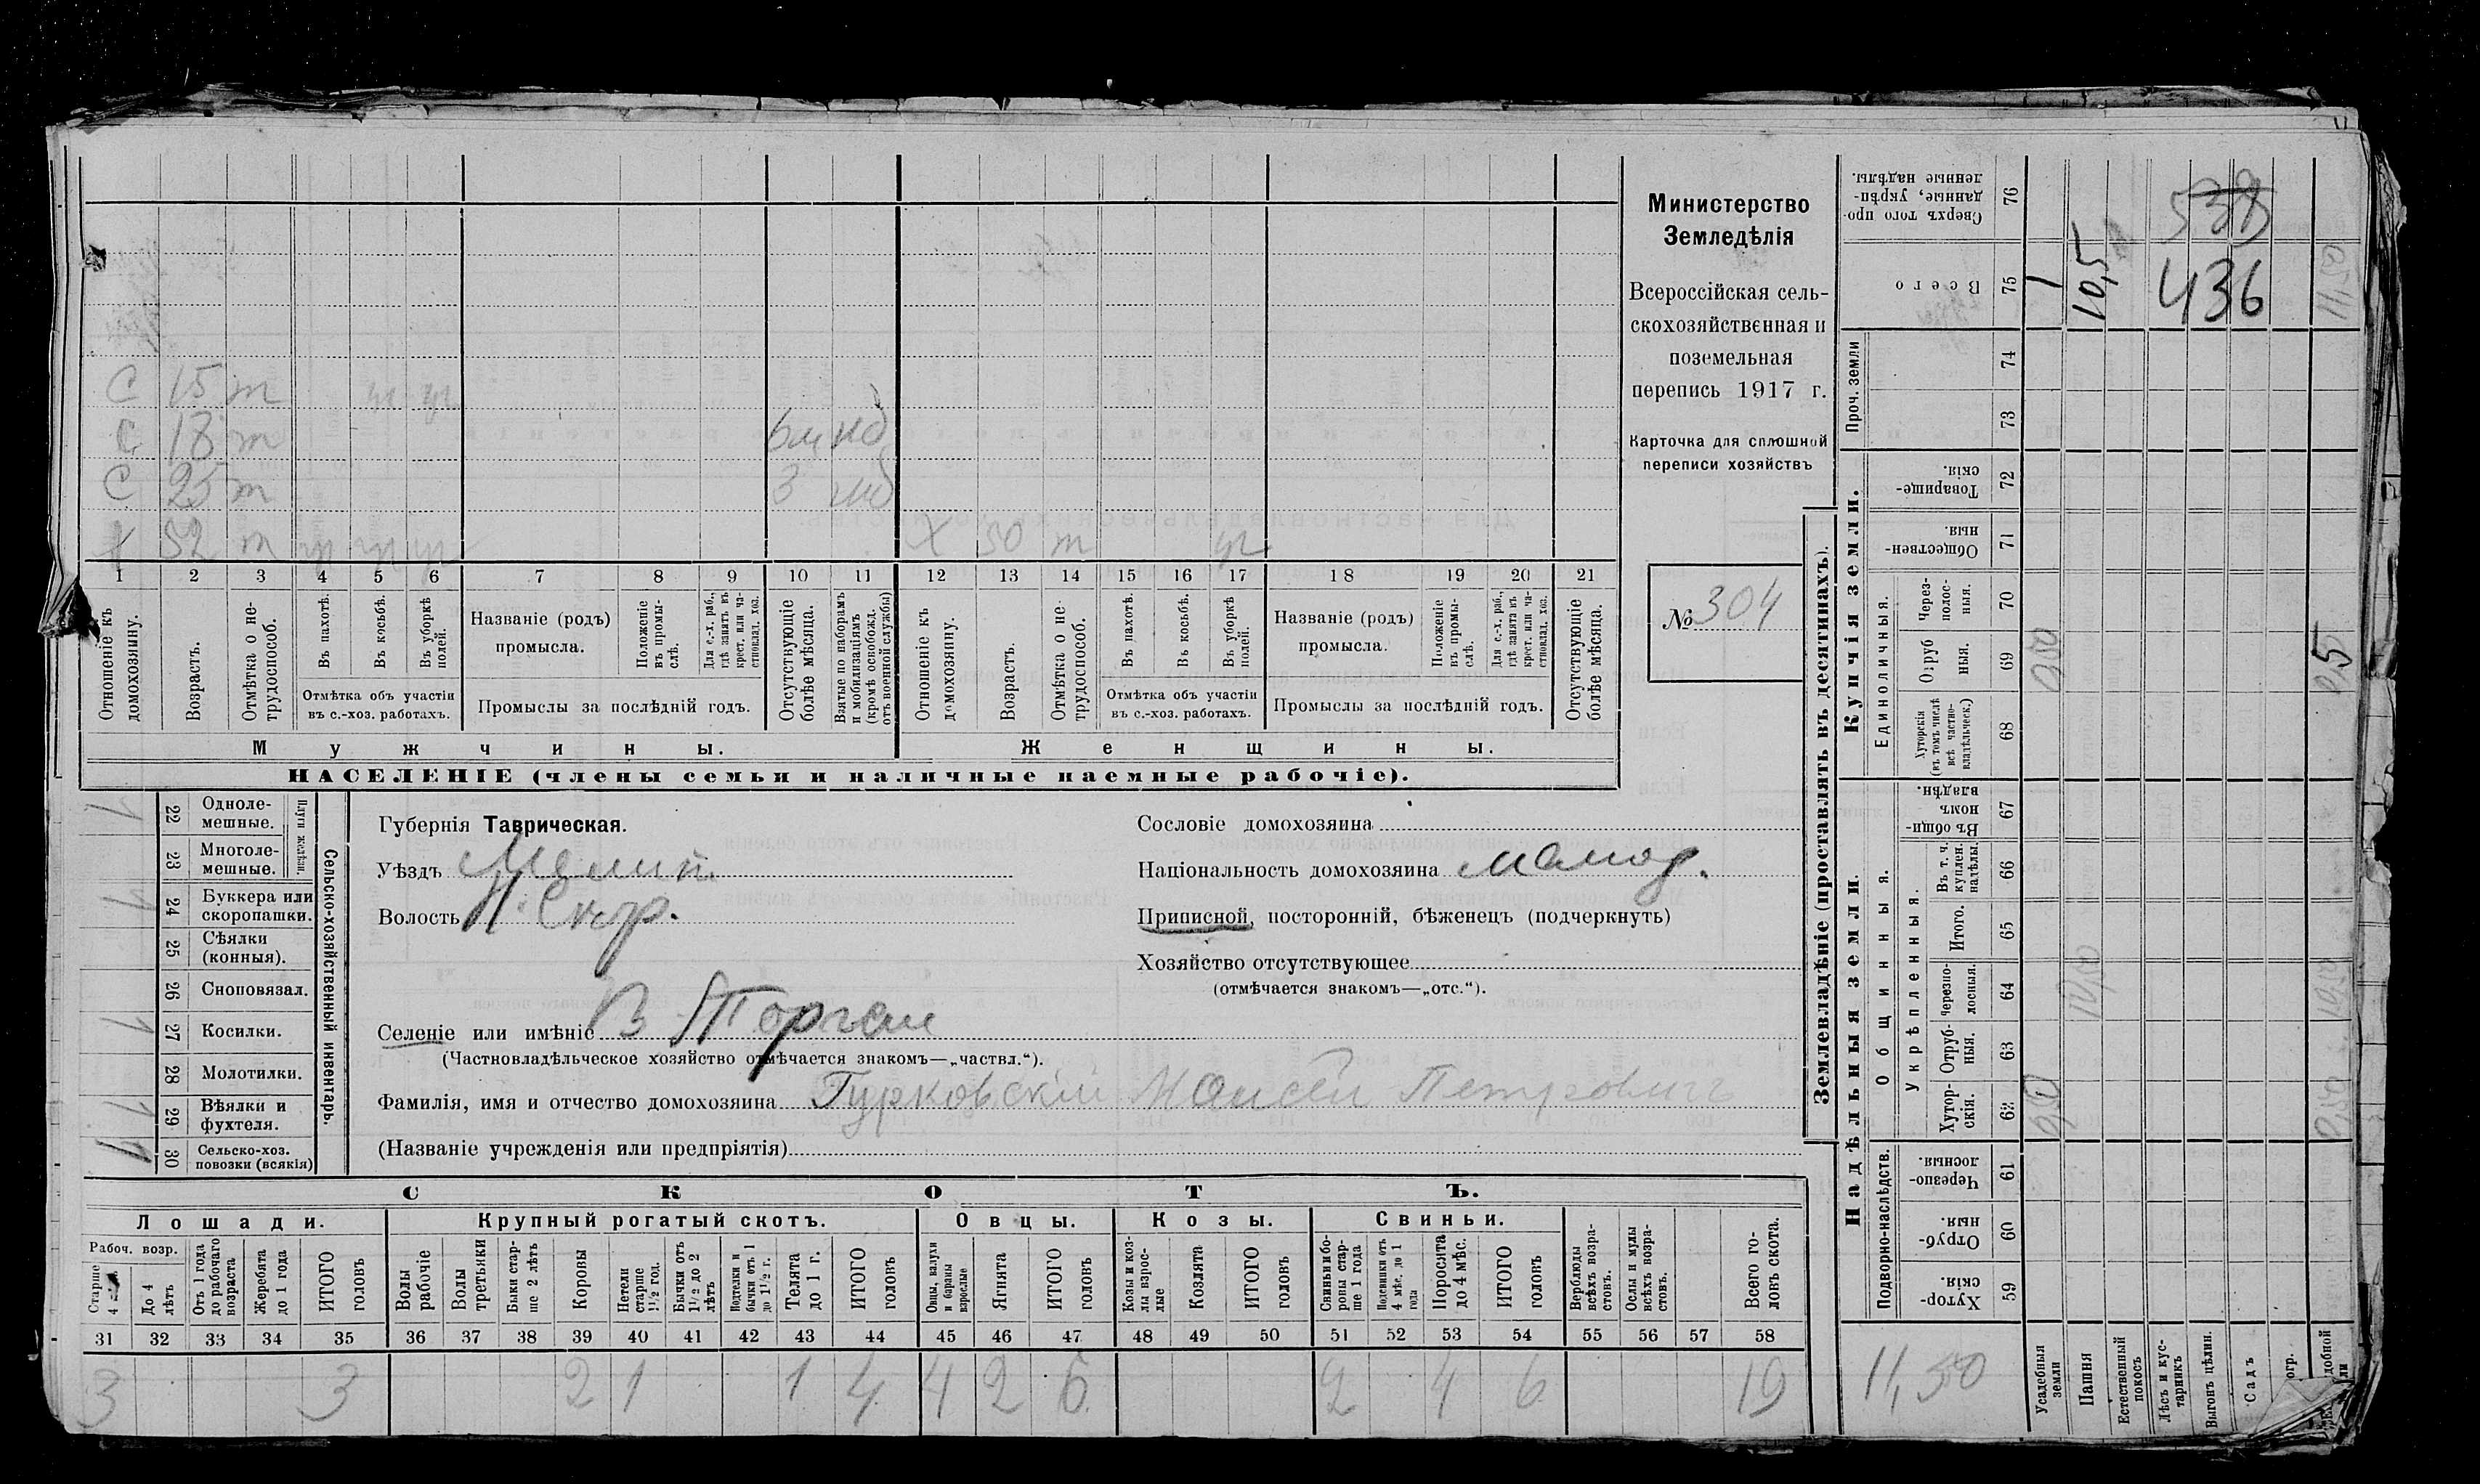 Министерство
Земледѣлія
Всероссійская сель-
скохозяйственная и
поземельная
перепись 1917 г.
Карточка для сплошной
переписи хозяйствъ
№ 304
С 15 т
С 18 т
С 25 т 3
Х 52 т Х 50 т
1 2 3 4 5 6 7 8 9 10 11 12 13 14 15 16 17 18 19 20 21
Отношеніе къ домохозяину.
Возрастъ.
Отмѣтка о не-трудоспособ.
Въ пахотѣ.
Въ косьбѣ.
Въ уборкѣ полей.
Отмѣтка объ участіи
въ с.-хоз. работахъ.
Названіе (родъ)
промысла.
Положеніе въ промы-слѣ.
Для с.-х. раб., гдѣ занятъ въ крест. или ча-стновлад. хоз.
Промыслы за послѣдній годъ.
Отсутствующіе болѣе мѣсяца.
Взятые по наборамъ и мобилизаціямъ (кромѣ освобожд. отъ военной службы)
Отношеніе къ домохозяину.
Возрастъ.
Отмѣтка о не-трудоспособ.
Въ пахотѣ.
Въ косьбѣ.
Въ уборкѣ полей.
Отмѣтка объ участіи
въ с.-хоз. работахъ.
Названіе (родъ)
промысла.
Положеніе въ промы-слѣ.
Для с.-х. раб., гдѣ занята въ крест. или ча-стновлад. хоз.
Промыслы за послѣдній годъ.
Отсутствующіе болѣе мѣсяца.
Мужчины. Женщины.
НАСЕЛЕНІЕ (члены семьи и наличные наемные рабочіе).
Сельско-хозяйственный инвентарь.
Плуги желѣзн.
22 Одноле-мешные.
1
23 Многоле-мешные.
24 Буккера или скоропашки.
1
25 Сѣялки (конныя).
26 Сноповязал.
27 Косилки.
1
28 Молотилки.
29 Вѣялки и фухтеля.
1
30 Сельско-хоз. повозки (всякія)
1
Губернія Таврическая.
Уѣздъ Мелит.
Волость
Селеніе или имѣніе В Торгаи
(Частновладѣльческое хозяйство отмѣчается знакомъ—„частвл.“).
Фамилія, имя и отчество домохозяина Гурковскій Моисей Петровичъ
(Названіе учрежденія или предпріятія)
Сословіе домохозяина
Національность домохозяина малор.
Приписной, посторонній, бѣженецъ (подчеркнуть)
Хозяйство отсутствующее
(отмѣчается знакомъ—„отс.“).
СКОТЪ.
Лошади. Крупный рогатый скотъ. Овцы. Козы. Свиньи.
Рабоч. возр.
Старше 4
До 4 лѣтъ
Отъ 1 года до рабочаго возраста
Жеребята до 1 года
ИТОГО головъ
Волы рабочіе
Волы третьяки
Быки стар-ше 2 лѣтъ
Коровы
Нетели старше 1½ год.
Бычки отъ 1½ до 2 лѣтъ
Подтелки и бычки отъ 1 до 1½ г.
Телята до 1 г.
ИТОГО головъ
Овцы, валухи и бараны взрослые
Ягнята
ИТОГО головъ
Козы и коз-лы взрос-лые
Козлята
ИТОГО головъ
Свиньи и бо-ровы стар-ше 1 года
Подсвинки отъ 4 мѣс. до 1 года
Поросята до 4 мѣс.
ИТОГО головъ
Верблюды всѣхъ возра-стовъ.
Ослы и мулы всѣхъ возра-стовъ.
Всего го-ловъ скота.
31 32 33 34 35 36 37 38 39 40 41 42 43 44 45 46 47 48 49 50 51 52 53 54 55 56 57 58
3 3 2 1 1 4 4 2 6 2 4 6 19
Землевладѣніе (проставлять въ десятинахъ).
Надѣльныя земли. Купчія земли.
Подворно-наслѣдств.
Общинныя.
Укрѣпленныя.
Единоличныя.
Проч. земли
Хутор-скія. 59
Отруб-ныя. 60
Черезпо-лосныя. 61
Хутор-скія. 62
Отруб-ныя. 63
Черезпо-лосныя. 64
Итого. 65
Въ т. ч. куплен. надѣлы. 66
Въ общи-номъ владѣн. 67
Хуторскія (въ томъ числѣ всѣ частно-владѣльческ.) 68
Отруб ныя. 69
Через-полос-ныя. 70
Обществен-ныя. 71
Товарище-скія. 72
73
74
Всего 75
Сверхъ того про-данные, укрѣп-ленные надѣлы. 76
Усадебныя земли
Пашня
Естественный покосъ
Лѣсъ и кус-тарникъ
Выгонъ цѣлин.
Садъ
11,50
0,50
1
10,5
0,5
11,50
538
436